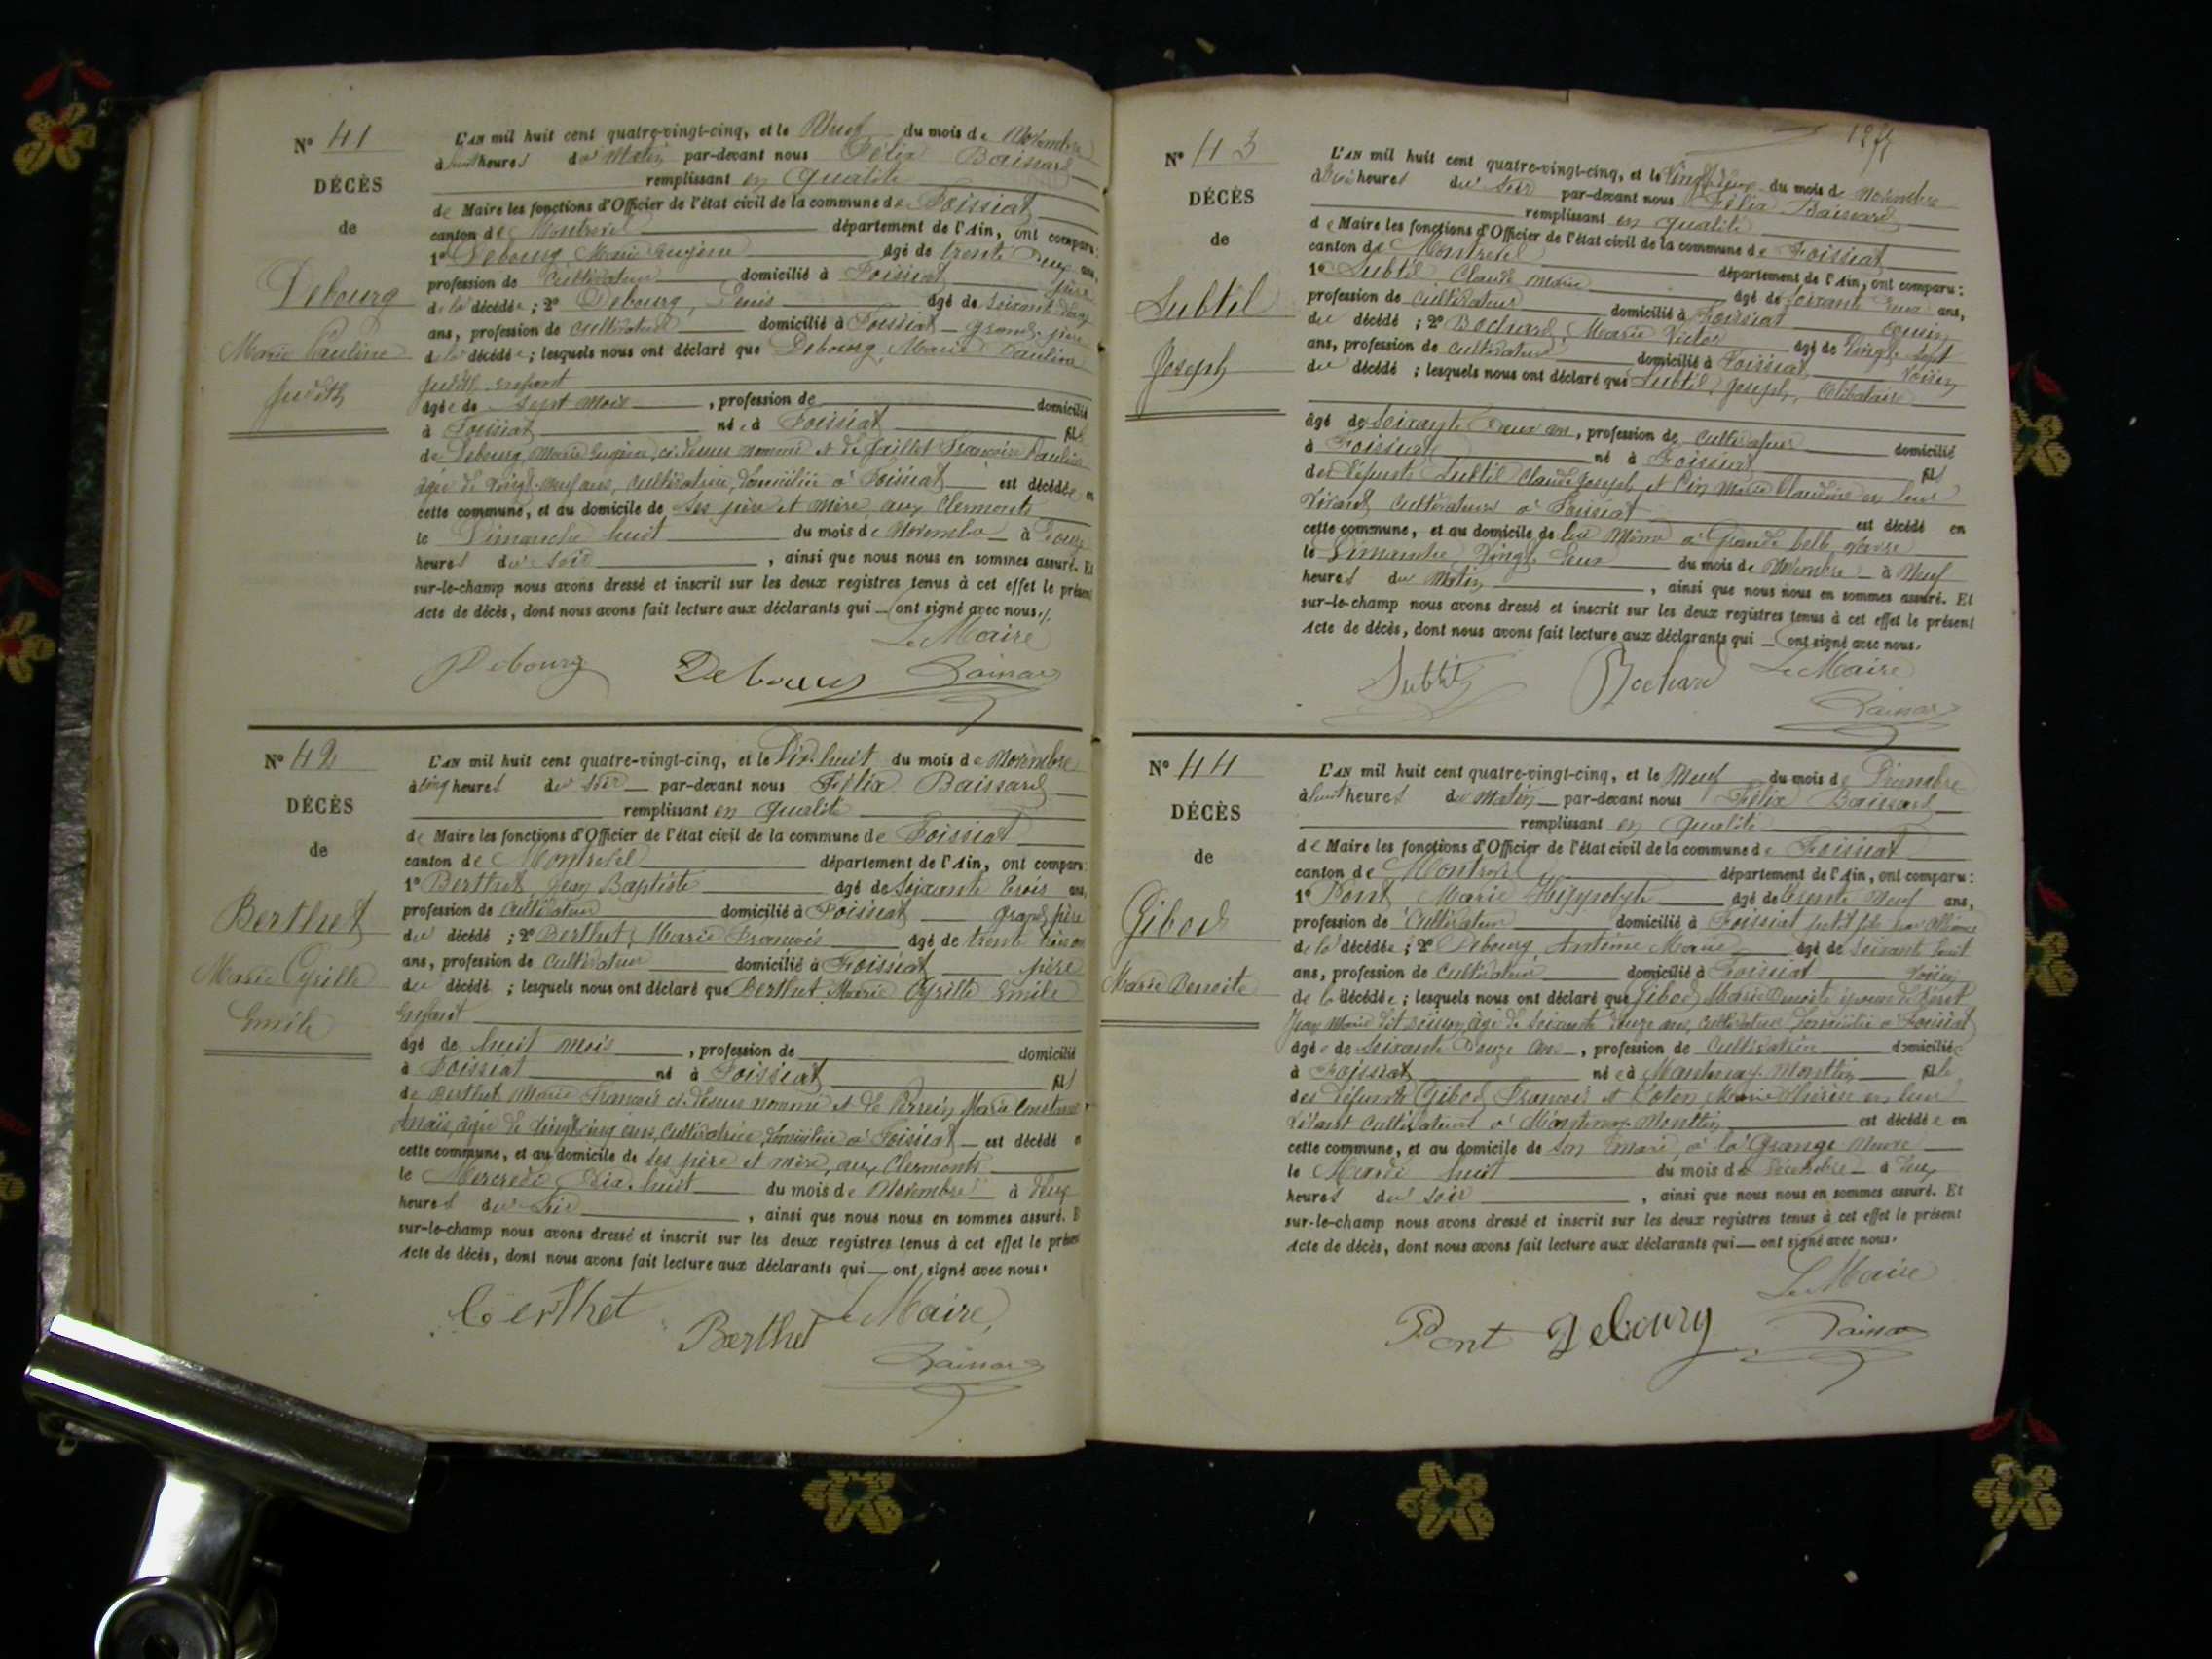 N° 41
DÉCÈS
de
Debourg
Marie Pauline
Judith
L'AN mil huit cent quatre-vingt-cinq, et le Neuf du mois de Novembre
à huit heures du Matin par-devant nous Félix Baissard
remplissant en qualité
de Maire les fonctions d'Officier de l'état civil de la commune de Foissiat
canton de Montrevel département de l'Ain, ont comparu:
1° Debourg, Marie Eugène âgé de trente Deux ans,
profession de Cultivateur domicilié à Foissiat père
de la décédée ; 2° Debourg, Denis âgé de soixante
ans, profession de cultivateur domicilié à Foissiat grand-père
de la décédée ; lesquels nous ont déclaré que Debourg, Marie Pauline
Judith enfant
âgée de sept mois , profession de domicilié
à Foissiat née à Foissiat fille
de Debourg, Marie Eugène, ci-dessus nommé et de Jaillet Françoise Pauline
âgée de vingt-neuf ans, cultivatrice, domiciliée à Foissiat est décédée en
cette commune, et au domicile de ses père et mère, aux Clermonts
le Dimanche huit du mois de Novembre à
heures du soir , ainsi que nous nous en sommes assuré. Et
sur-le-champ nous avons dressé et inscrit sur les deux registres tenus à cet effet le présent
Acte de décès, dont nous avons fait lecture aux déclarants qui ont signé avec nous.
Le Maire
Debourg Debourg Baissard
N° 42
DÉCÈS
de
Berthet
Marie Cyrille
Emile
L'AN mil huit cent quatre-vingt-cinq, et le Dix-huit du mois de Novembre
à cinq heures du soir par-devant nous Félix Baissard
remplissant en qualité
de Maire les fonctions d'Officier de l'état civil de la commune de Foissiat
canton de Montrevel département de l'Ain, ont comparu:
1° Berthet, Jean Baptiste âgé de soixante trois ans,
profession de Cultivateur domicilié à Foissiat grand-père
du décédé ; 2° Berthet, Marie François âgé de trente trois
ans, profession de cultivateur domicilié à Foissiat père
du décédé ; lesquels nous ont déclaré que Berthet Marie Cyrille Emile
enfant
âgé de huit mois , profession de domicilié
à Foissiat né à Foissiat fils
de Berthet Marie François ci-dessus nommé et de Perrein Marie Constance
Anaïs, âgée de vingt-cinq ans, cultivatrice, domiciliée à Foissiat est décédé
cette commune, et au domicile de ses père et mère, aux Clermonts
le Mercredi Dix-huit du mois de Novembre à deux
heures du soir , ainsi que nous nous en sommes assuré. E
sur-le-champ nous avons dressé et inscrit sur les deux registres tenus à cet effet le présent
Acte de décès, dont nous avons fait lecture aux déclarants qui ont signé avec nous.
Berthet Berthet Le Maire,
Baissard
N° 43
DÉCÈS
de
Subtil
Joseph
L'AN mil huit cent quatre-vingt-cinq, et le Vingt-deux du mois de Novembre
à trois heures du soir par-devant nous Félix Baissard
remplissant en qualité
de Maire les fonctions d'Officier de l'état civil de la commune de Foissiat
canton de Montrevel département de l'Ain, ont comparu:
1° Subtil Claude Marie âgé de soixante deux ans,
profession de cultivateur domicilié à Foissiat cousin
du décédé ; 2° Bochard, Marie Victor âgé de Vingt sept
ans, profession de cultivateur domicilié à Foissiat voisin
du décédé ; lesquels nous ont déclaré que Subtil, Joseph, Célibataire
âgé de soixante Deux ans, profession de cultivateur domicilié
à Foissiat né à Foissiat fils
des défunts Subtil Claude Joseph et Pin Marie Claudine en leur
vivant cultivateurs à Foissiat est décédé en
cette commune, et au domicile de lui même à Grande Velle
le Dimanche Vingt Deux du mois de Novembre à Neuf
heures du Matin , ainsi que nous nous en sommes assuré. Et
sur-le-champ nous avons dressé et inscrit sur les deux registres tenus à cet effet le présent
Acte de décès, dont nous avons fait lecture aux déclarants qui ont signé avec nous.
Subtil Bochard Le Maire
Baissard
N° 44
DÉCÈS
de
Gibod
Marie Benoite
L'AN mil huit cent quatre-vingt-cinq, et le Neuf du mois de Décembre
à huit heures du Matin par-devant nous Félix Baissard
remplissant en qualité
de Maire les fonctions d'Officier de l'état civil de la commune de Foissiat
canton de Montrevel département de l'Ain, ont comparu:
1° Pont Marie Hyppolyte âgé de trente Neuf ans,
profession de Cultivateur domicilié à Foissiat petit fils par alliance
de la décédée ; 2° Debourg, Antoine Marie âgé de soixante huit
ans, profession de cultivateur domicilié à Foissiat voisin
de la décédée ; lesquels nous ont déclaré que Gibod Marie Benoite épouse de
Jean Marie dit âgé de soixante douze ans, cultivateur domicilié à Foissiat
âgée de soixante Douze ans , profession de Cultivatrice domiciliée
à Foissiat née à Mantenay-Montlin fille
des défunts Gibod François et Marie Thérèse en leur
vivant cultivateurs à Mantenay-Montlin est décédée en
cette commune, et au domicile de son mari, à la Grange Neuve
le Mardi huit du mois de Décembre à deux
heures du soir , ainsi que nous nous en sommes assuré. Et
sur-le-champ nous avons dressé et inscrit sur les deux registres tenus à cet effet le présent
Acte de décès, dont nous avons fait lecture aux déclarants qui ont signé avec nous.
Le Maire
Pont Debourg Baissard